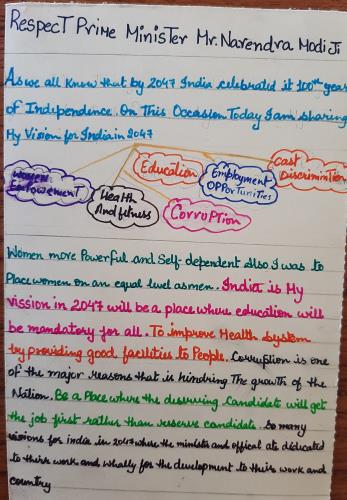 Respect Prime Minister Mr. Narendra Modi Ji
As we all know that by 2047 India celebrated it 100th year
of Independence. On This Occasion Today I am sharing
My Vision for India in 2047
Women Empowement
Health And fitness
Education
Employment Opportunities
Corruption
Cast Discrimination
Women more Powerful and Self-dependent also I was to
Place women on an equal level as men. India is My
vission in 2047 will be a place where education will
be mandatory for all. To improve Health system
by providing good facilities to People. Corruption is one
of the major reasons that is hindring The growth of the
Nation. Be a Place where the deserving Candidate will get
the job first rather than reserve candidate. So many
visions for india in 2047 where the minister and offical are dedicated
to their work and whally for the development to their work and
country